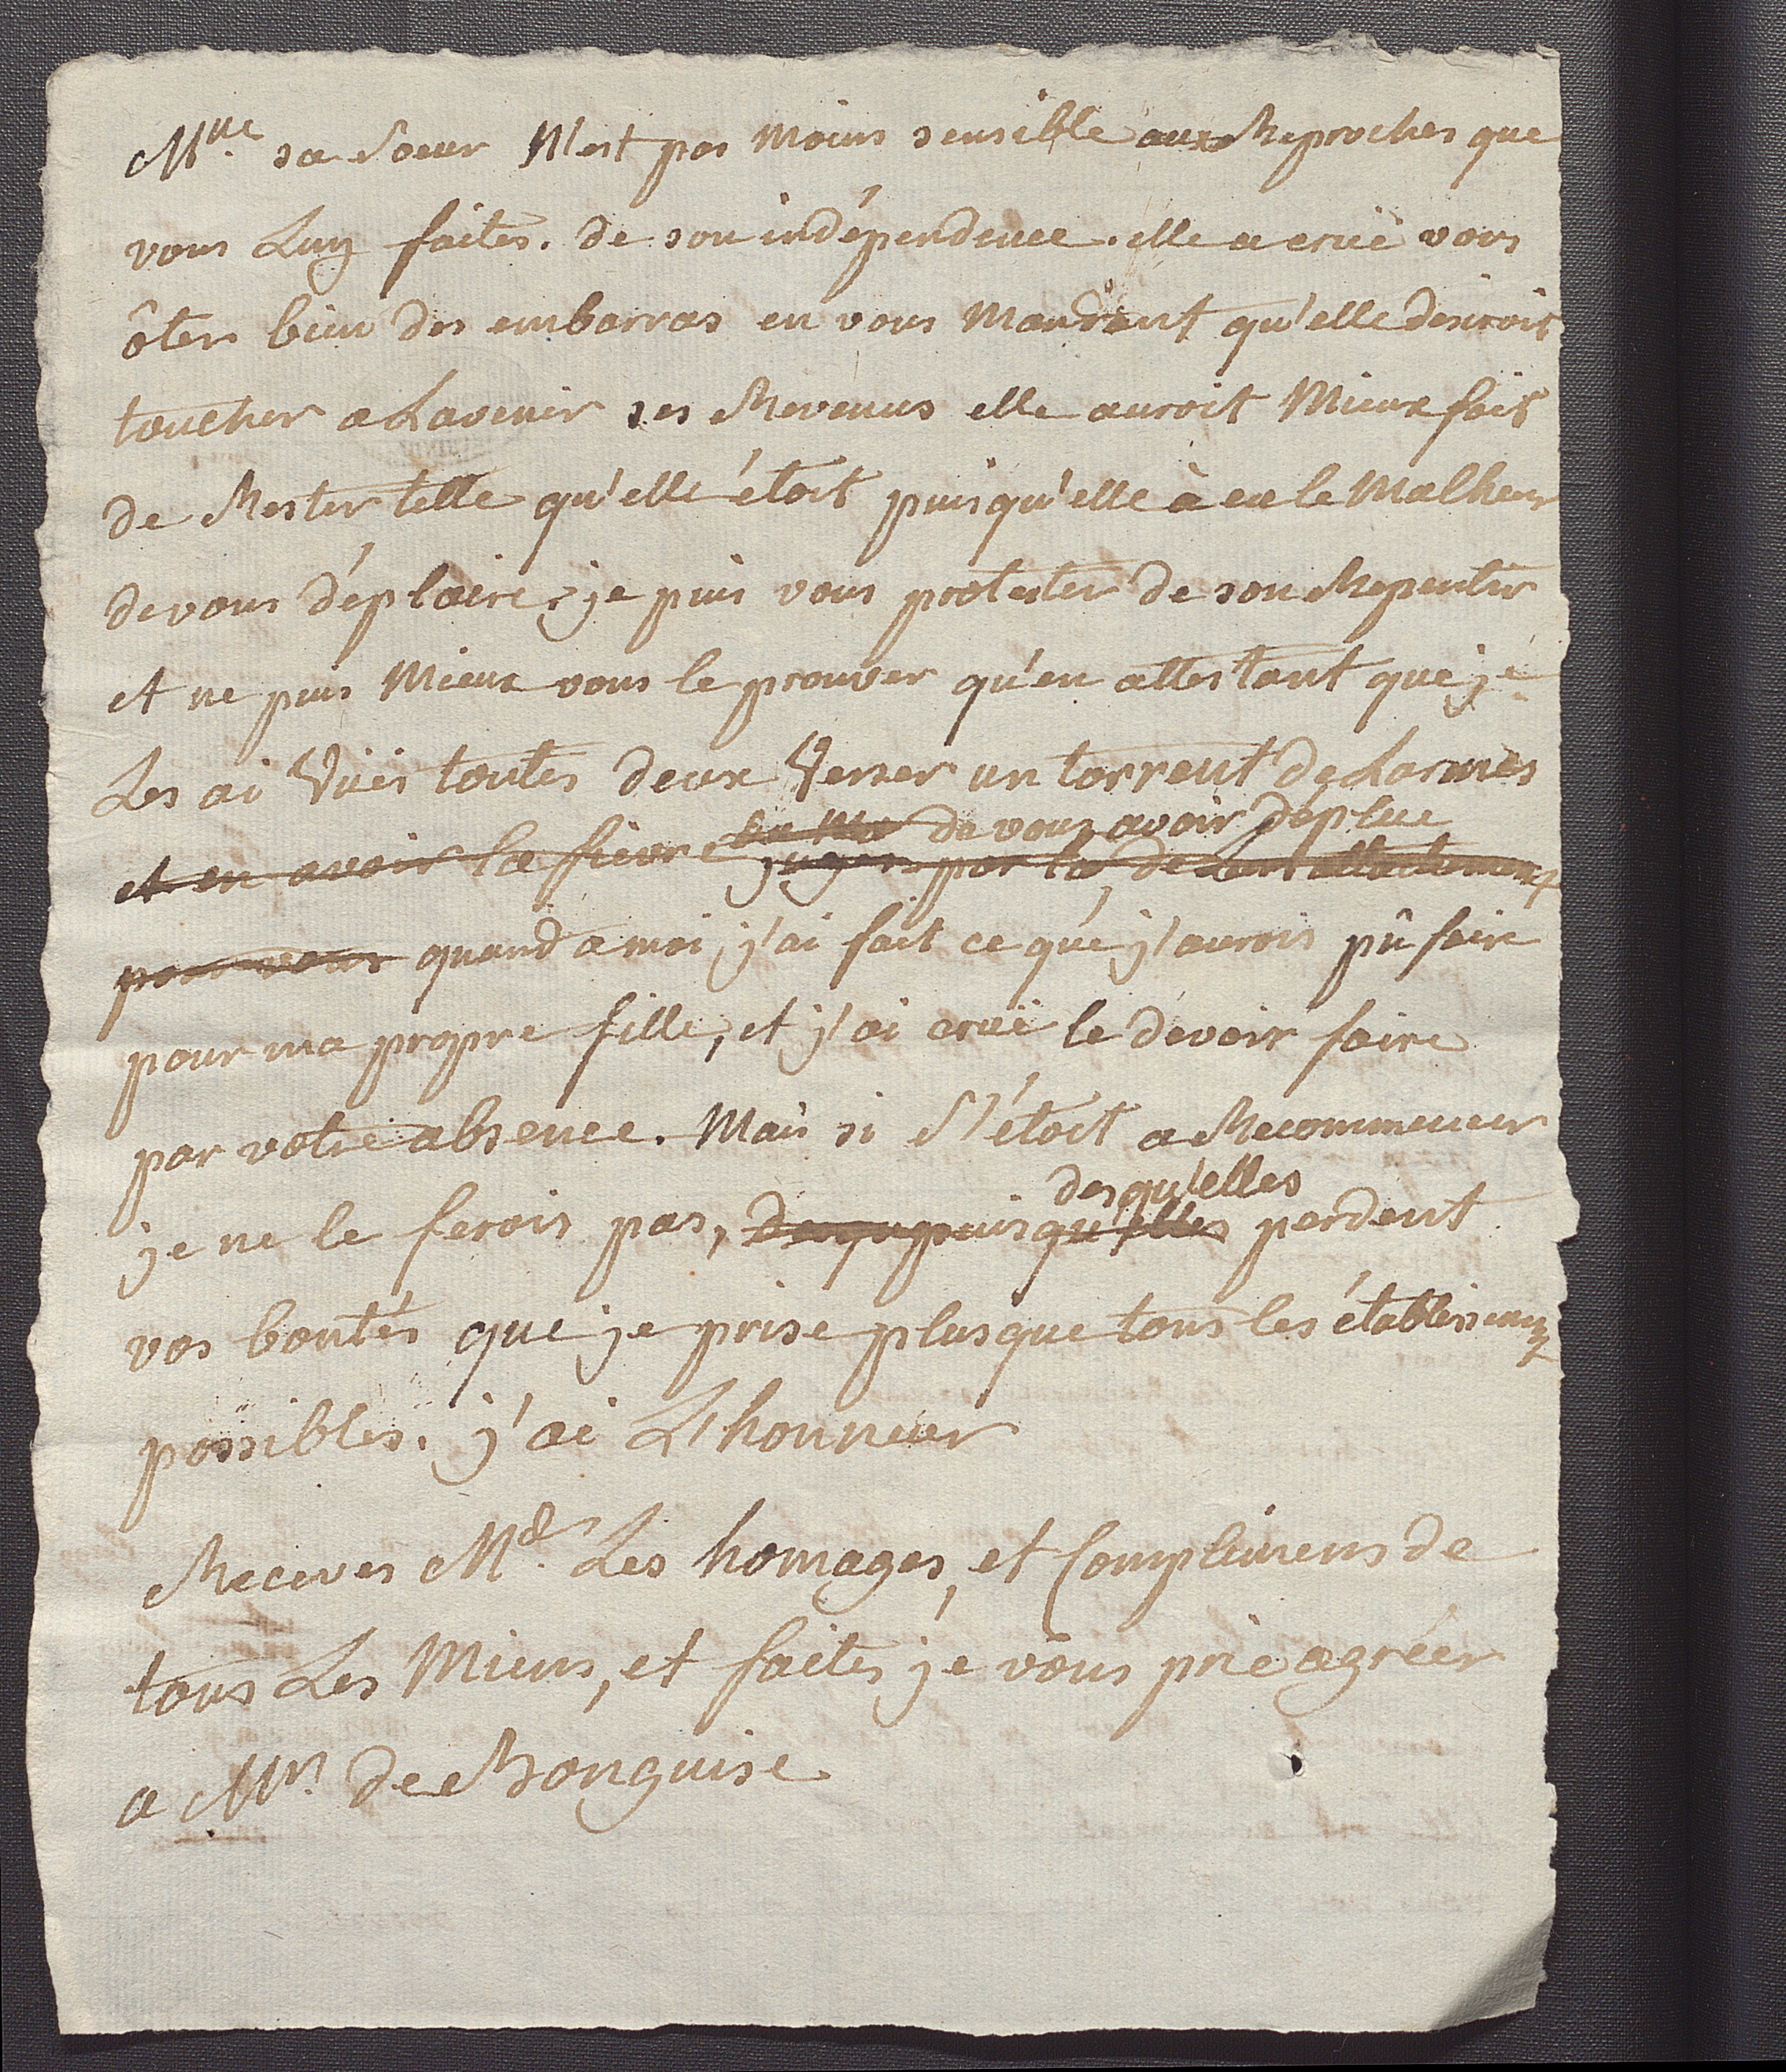 Mlle sa Soeur N'est pas Moins sensible aux Reproches que
vous Luy faites. de son indépendence. elle a crüe vous
ôter bien des embarras en vous Mandant qu'elle desiroit
toucher a Lavenir ses Revenus elle auroit Mieux fait
de Rester telle qu'elle étoit puisqu'elle à eu le Malheur
de vous déplaire, je puis vous protester de son Repentir
et ne puis Mieux vous le prouver qu'en attestant que je
Les ai Vües toutes deux Verser un torrent de Larmes
de vous avoir déplue
et en avoir la fievre juger par la de Leur attachement
pour vous quand a moi, j'ai fait ce que j'aurois pû faire
pour ma propre fille, et j'ai crüe le devoir faire
par votre absence. Mais si S'étoit a Recommencer
desqu'elles
je ne le ferois pas, puisqu'elles perdent
vos bontés que je prise plus que tous les établissemens
possibles. j'ai L'honneur
Receves Md. Les homages, et Complimens de
tous Les Miens, et faites, je vous prie agréer
a Mr. de Bonguise